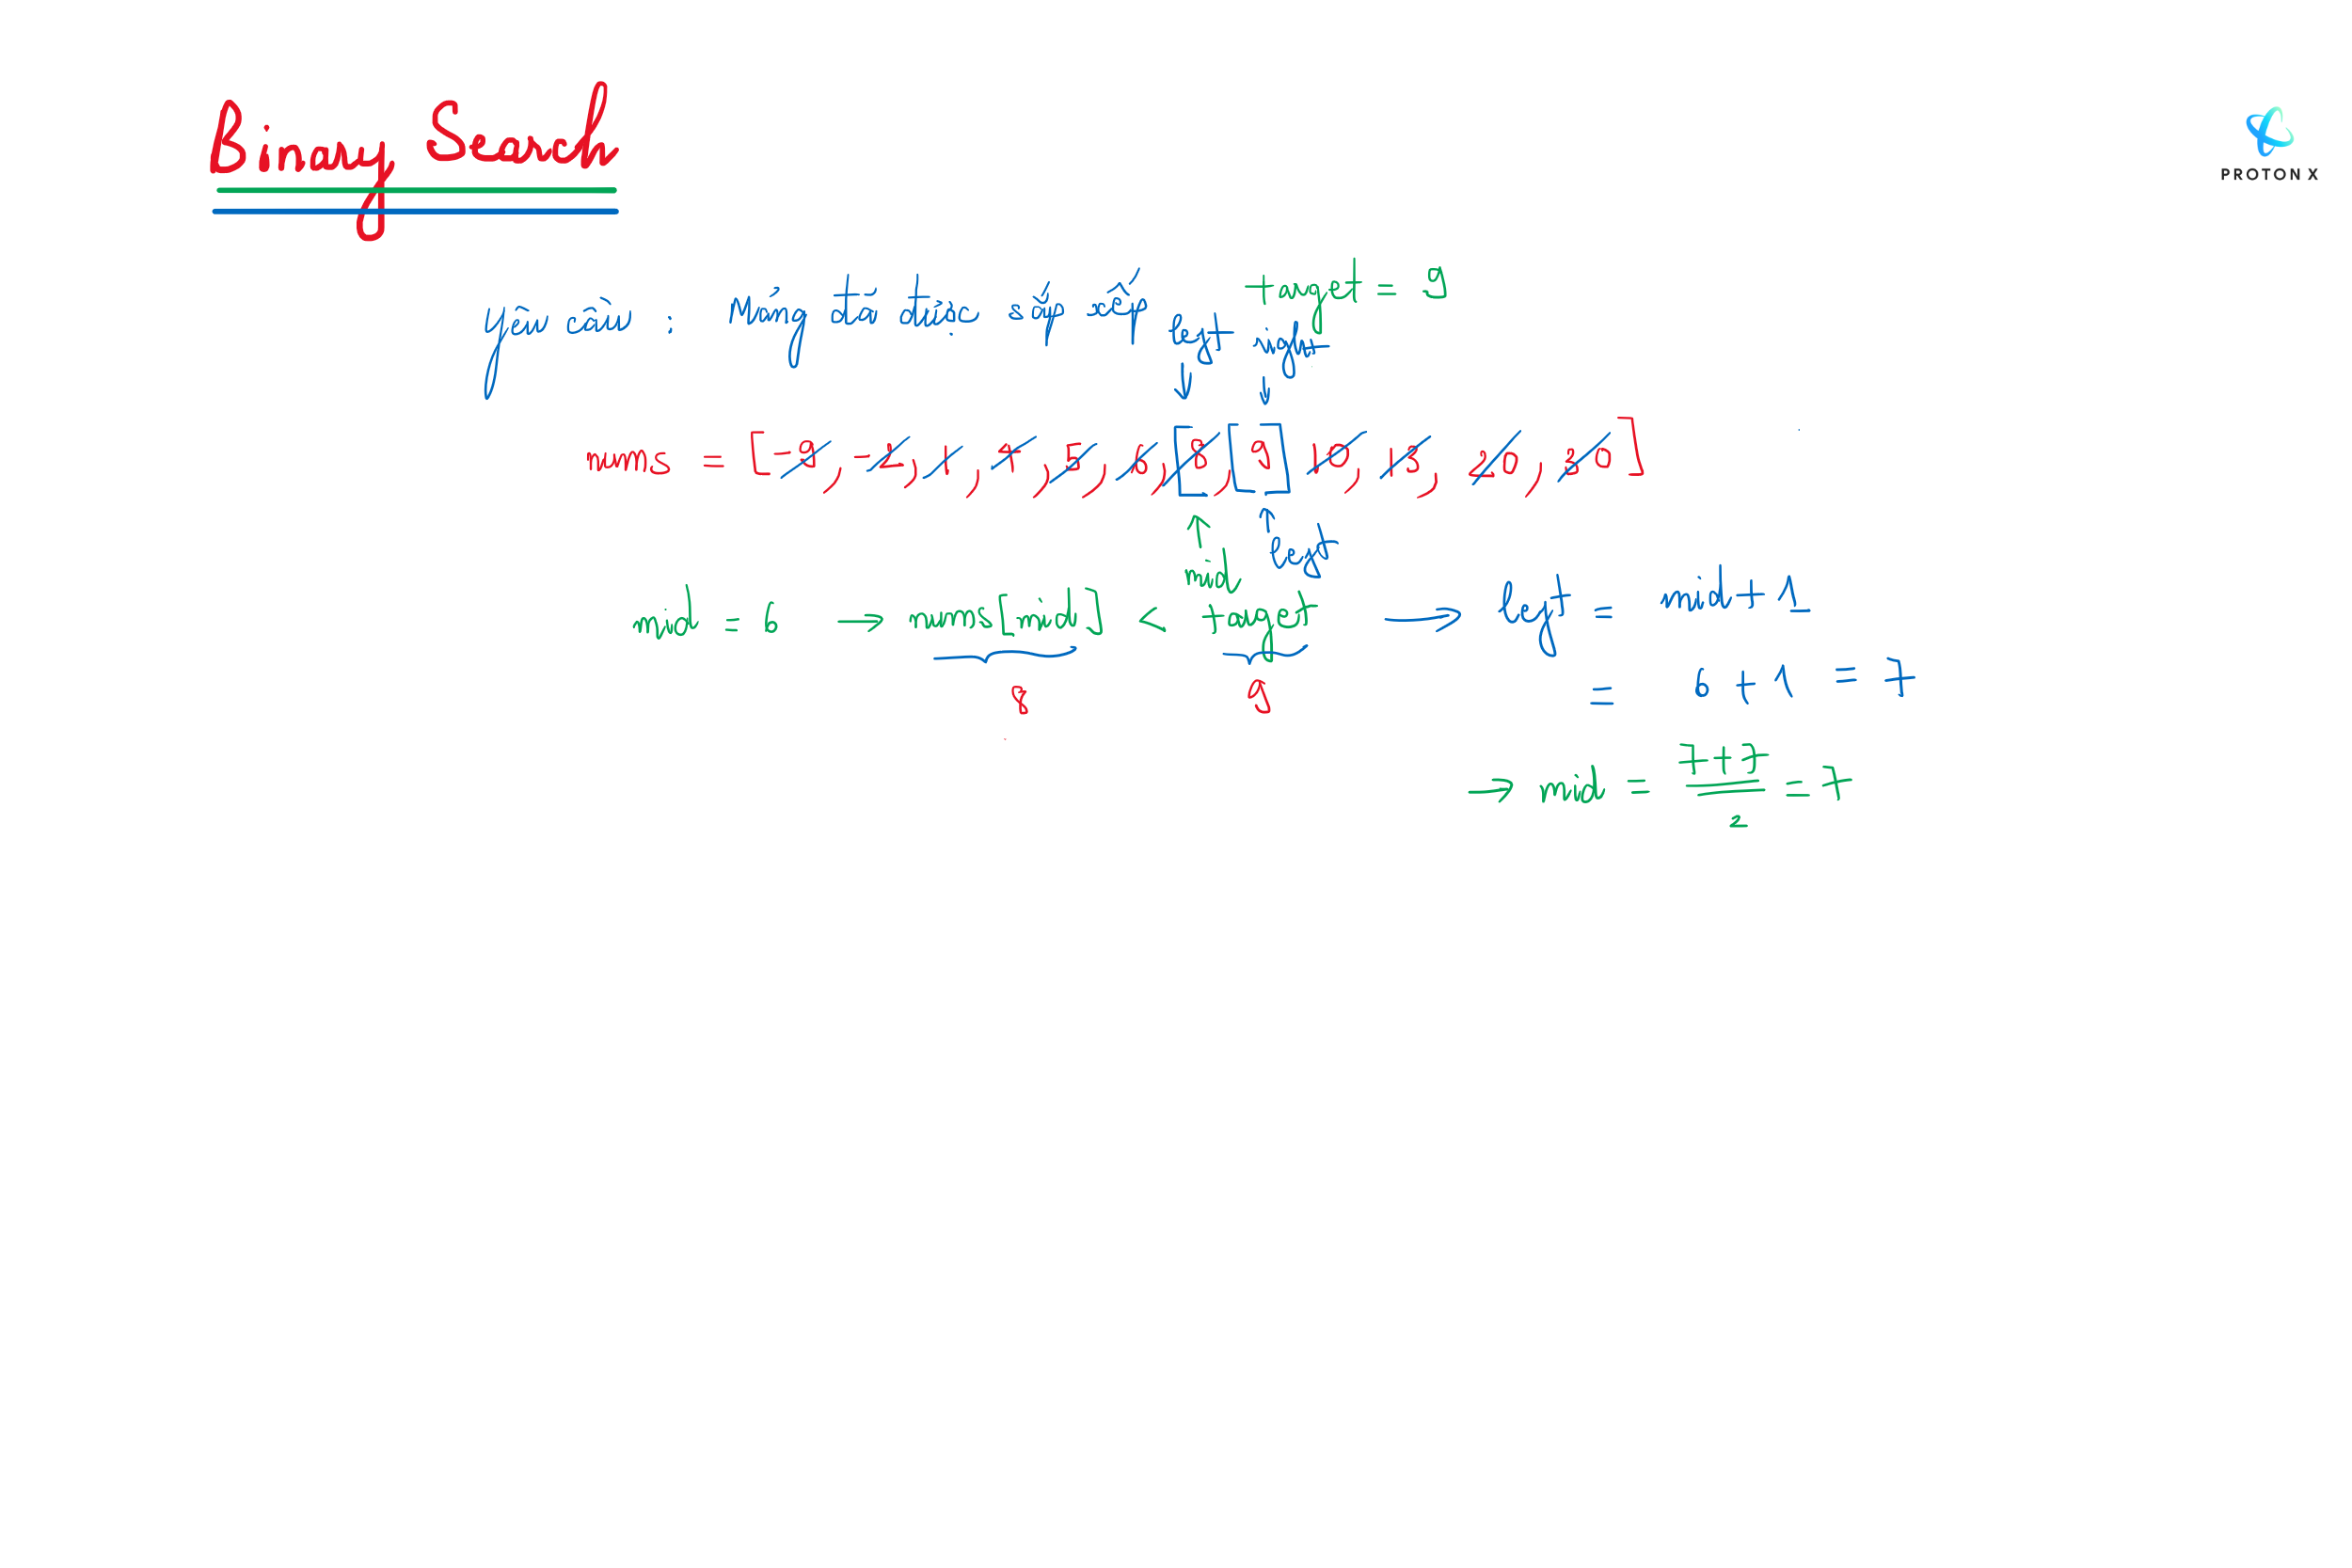 Binary Search
PROTON X
yêu cầu : Mảng đã được sắp xếp
target = 9
left right
nums = [-9, -2, 1, 4, 5, 6, [8, [9] 10, 13, 20, 30]
mid left
mid = 6 → nums[mid] < target → left = mid + 1
8 9 = 6 + 1 = 7
→ mid = 7+7 / 2 = 7